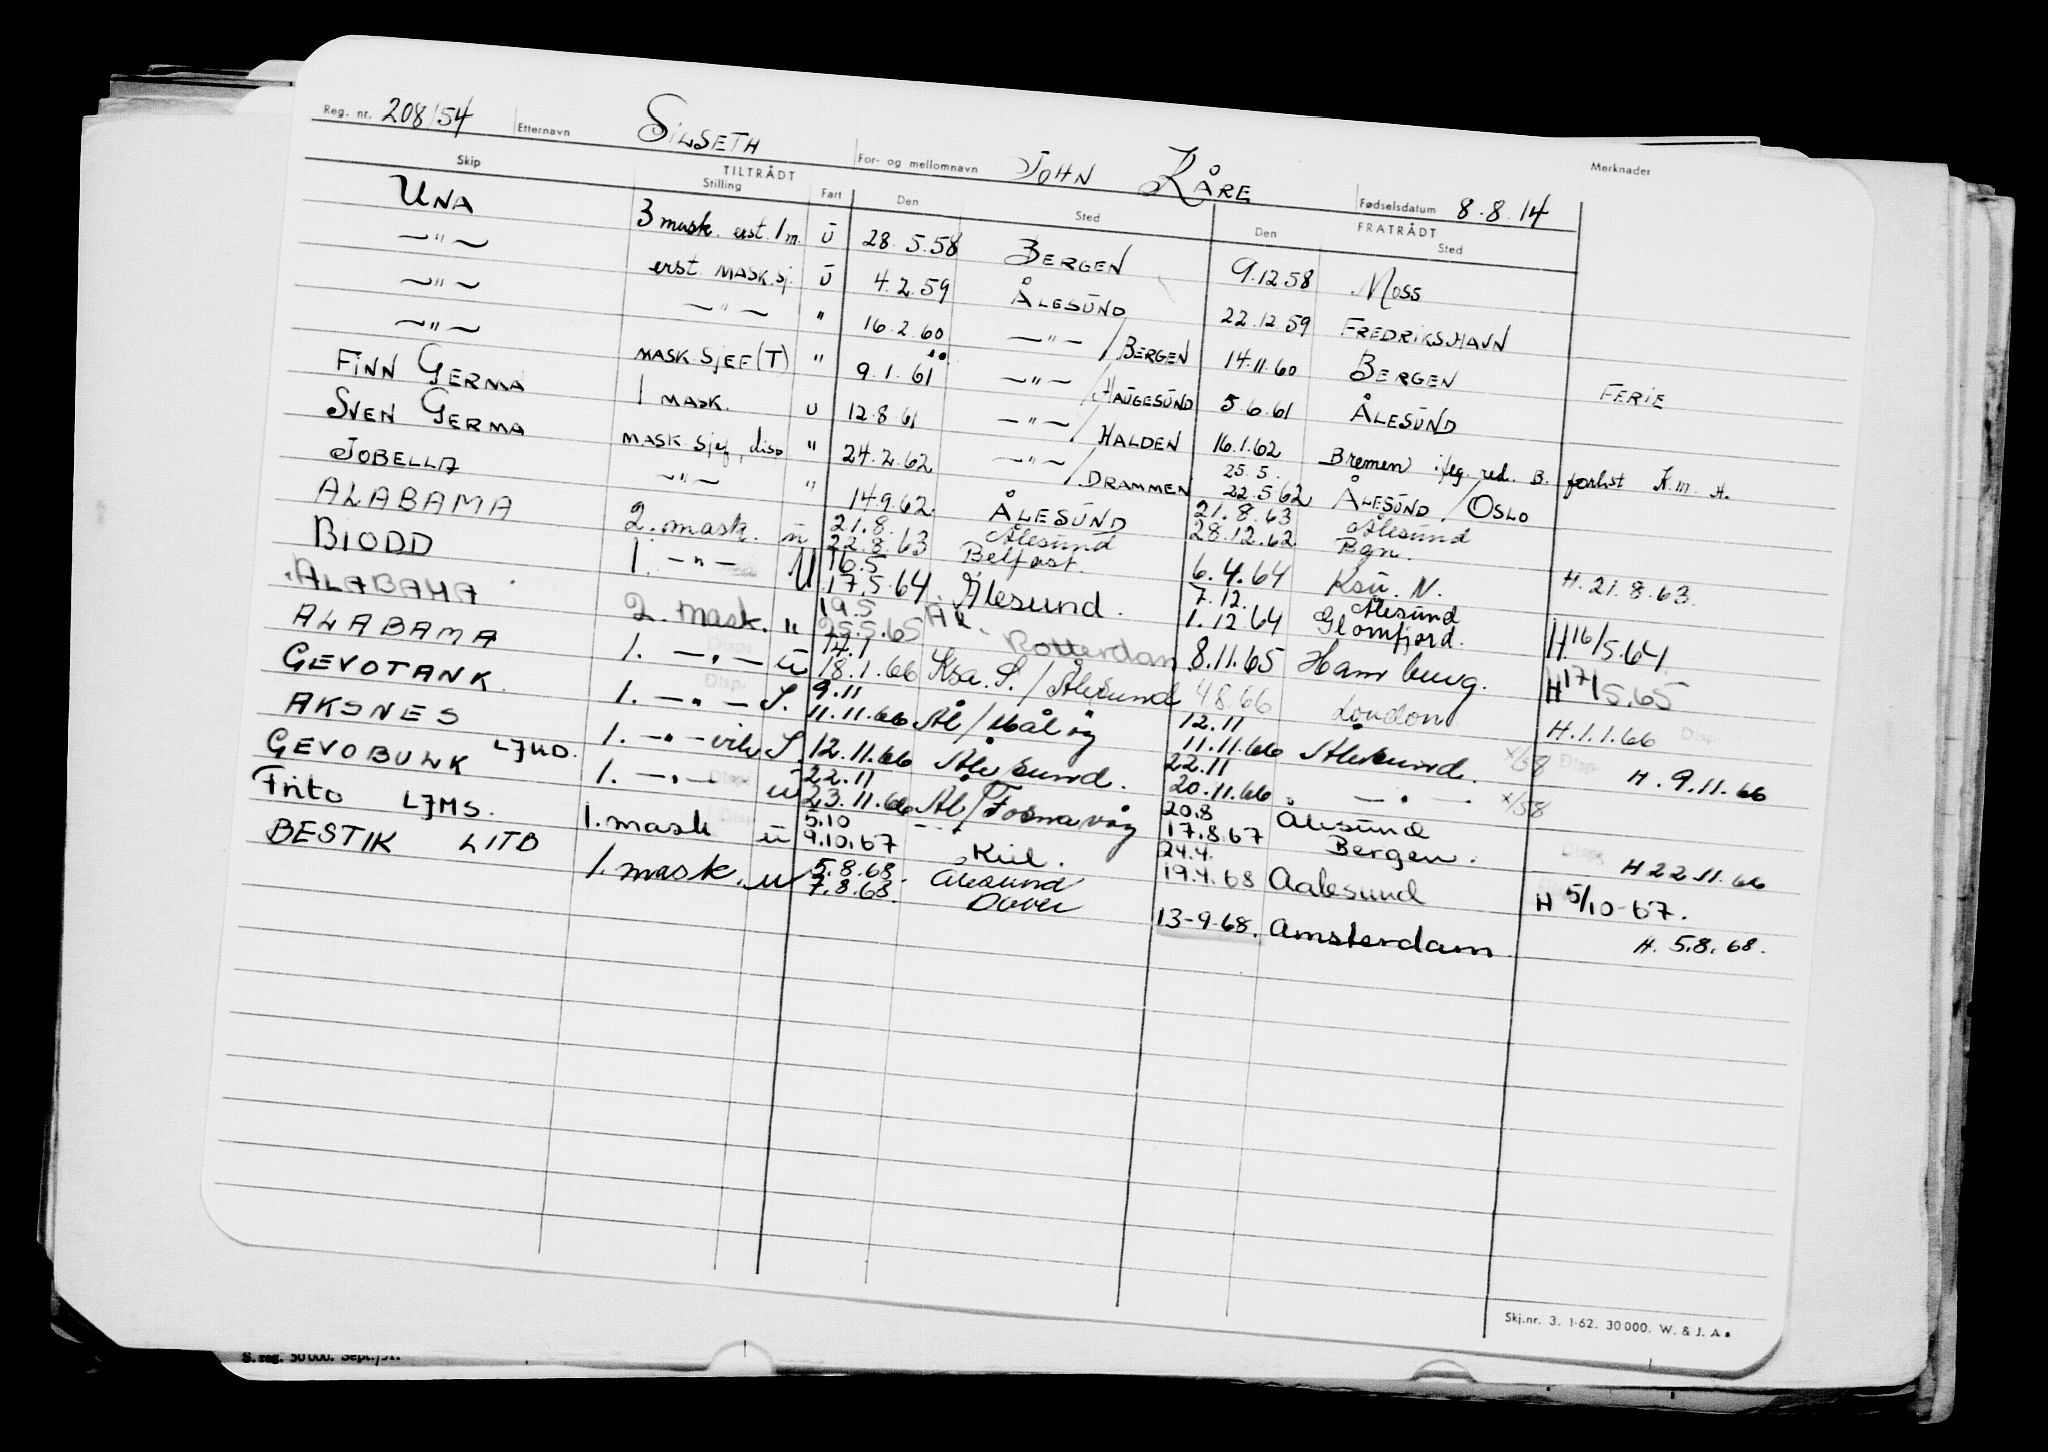 Reg. nr. 208/54 Etternavn SILSETH For- og mellomnavn JOHN KÅRE Fødselsdatum 8.8.14 Merknader
Skip TILTRÅDT Stilling Fart Den Sted FRATRÅDT Den Sted
UNA 3 mask. erst. 1 m. U 28.5.58 BERGEN 9.12.58 MOSS
—"— erst MASK.sj. U 4.2.59 ÅLESUND 22.12.59 FREDRIKSHAVN
—"— —"— " 16.2.60 —"— / BERGEN 14.11.60 BERGEN FERIE
—"— MASK SJEF (T) " 9.1.61 —"— / HAUGESUND 5.6.61 ÅLESUND
FINN GERMA 1 MASK. U 12.8.61 —"— / HALDEN 16.1.62 Bremen red. B. forlist K.m. A.
SVEN GERMA MASK sjef, disp " 24.2.62 —"— / DRAMMEN 25.5. 22.5.62 ÅLESUND / OSLO
JOBELLA —"— " 14.9.62 ÅLESUND 21.8.63 28.12.62 Ålesund Bgn. H. 21.8.63.
ALABAMA 2. mask. u 21.8. 22.8.63 Ålesund Belfast. 6.4.64 Ksu. N.
BIODD 1. —"— U 16.5 17.5.64 Ålesund. 7.12. 1.12.64 Ålesund Glomfjord. H 16/5.64
ALABAMA 2. mask. " 19.5 25.5.65 Ål. Rotterdam 8.11.65 Hamburg. H 17/5.65
ALABAMA 1. —"— u 14.1 18.1.66 Ksa. S. / Ålesund 4.8.66 London H. 1.1.66
GEVOTANK 1. —"— S. 9.11 11.11.66 Ål / Måløy 12.11 11.11.66 Ålesund. x/58 H. 9.11.66
AKSNES 1. —"— vik S. 12.11.66 Ålesund. 22.11 20.11.66 —"— x/58
GEVOBULK LJUD. 1. —"— u 22.11 23.11.66 Ål / Fosnavåg 20.8 17.8.67 Ålesund Bergen. H 22.11.66
Frito LJMS. 1. mask u 5.10 9.10.67 —"— Kiel. 24.4. 19.4.68 Aalesund H 5/10-67.
BESTIK LITB 1. mask. u 5.8.68. 7.8.68. Ålesund Dover 13-9-68. Amsterdam H. 5.8.68.
Skj.nr. 3. 1-62. 30 000. W. & J. A.
S. reg. 50 000. Sept./51.